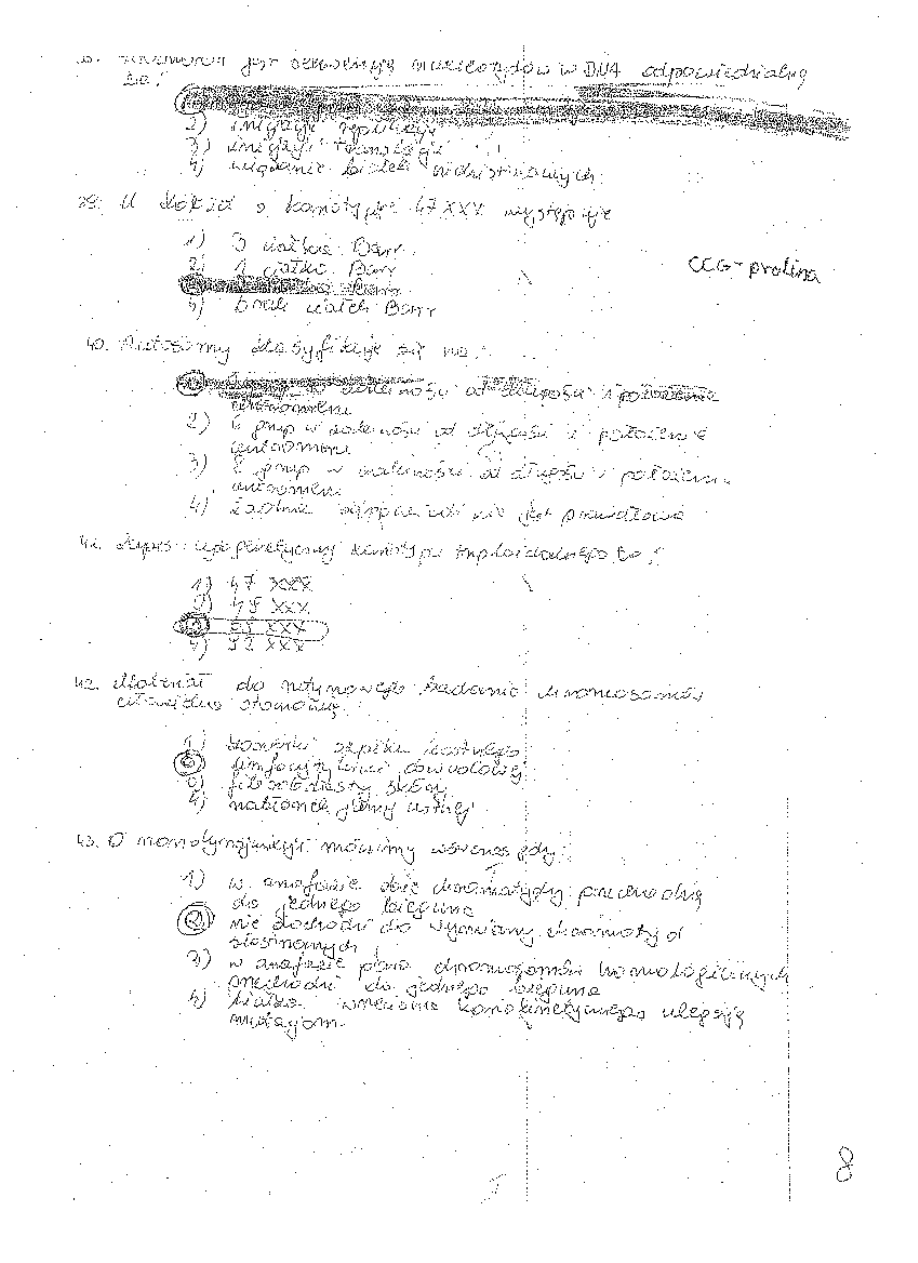 jest sekwencją nukleotydów w DNA odpowiedzialną
za:
2) inicjację replikacji
3) inicjację translacji
4) wiązanie białek niehistonowych
39. U kobiet o kariotypie 47 XXX występuje
1) 3 ciałka Barr
2) 1 ciałko Barr
4) brak ciałek Barr
CCG - prolina
40. Autosomy klasyfikuje się na:
w zależności od długości i położenia
centromeru
2) 6 grup w zależności od długości i położenia
centromeru
3) 8 grup w zależności od długości i położenia
centromeru
4) żadna odpowiedź nie jest prawidłowa
41. Zapis cytogenetyczny kariotypu triploidalnego to:
1) 47 XXX
XXX
69 XXX
4) 92 XXX
42. Materiał do rutynowego badania chromosomów
człowieka stanowią:
1) komórki szpiku kostnego
limfocyty krwi obwodowej
fibroblasty skóry
4) nabłonek jamy ustnej
43. O mówimy wówczas gdy:
1) w anafazie obie chromatydy przechodzą
do jednego bieguna
2) nie dochodzi do wymiany chromatyd
siostrzanych
3) w anafazie para chromosomów homologicznych
przechodzi do jednego bieguna
4) białka wrzeciona ulegają
mutacjom.
8